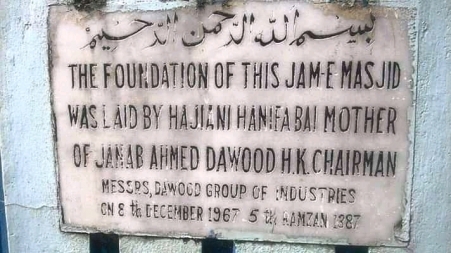 بسم الله الرحمن الرحيم
THE FOUNDATION OF THIS JAM-E-MASJID
WAS LAID BY HAJIANI HANIFABAI MOTHER
OF JANAB AHMED DAWOOD H.K. CHAIRMAN
MESSRS, DAWOOD GROUP OF INDUSTRIES
ON 8 th DECEMBER 1967 5 th RAMZAN 1387